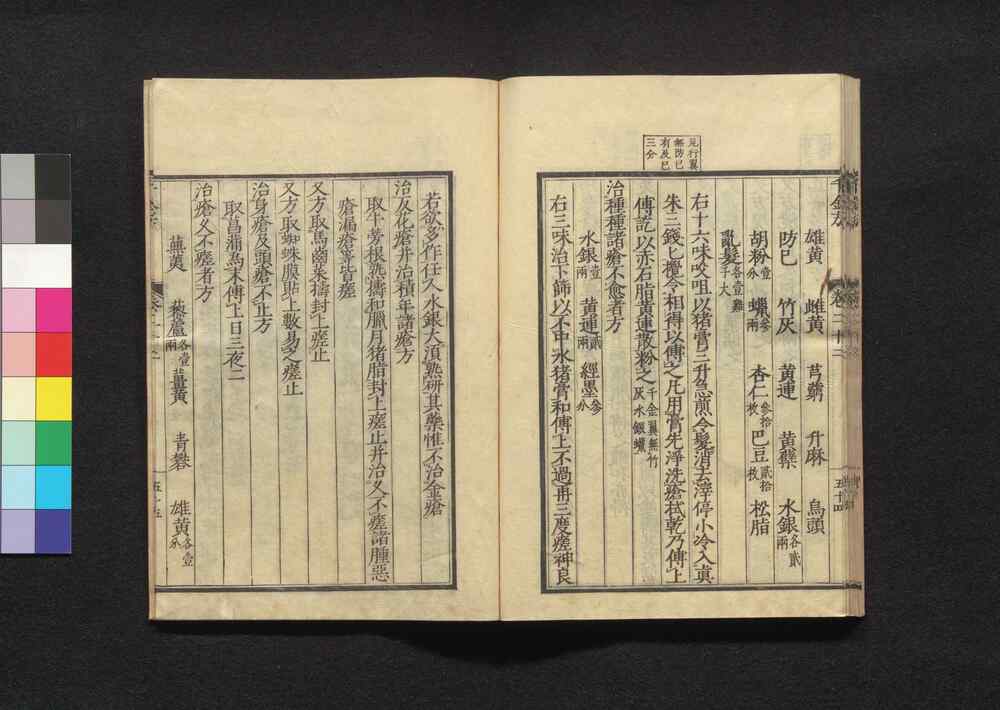 見行翼
無防已
有及巳
三分
雄黄 雌黄 芎藭 升麻 烏頭
防已 竹灰 黄連 黄蘗 水銀各貳兩
胡粉壹分 蠟參兩 杏仁參拾枚 巴豆貳拾枚 松脂
亂髮各壹雞子大
右十六味㕮咀以猪膏三升急煎令髮消去滓停小冷入眞
朱三錢匕攪令相得以傅之凡用膏先淨洗瘡拭乾乃傅上
傅訖以赤石脂黄連散粉之千金翼無竹灰水銀蠟
治種種諸瘡不愈者方
水銀壹兩 黄連貳兩 經墨參分
右三味治下篩以不中水猪膏和傅上不過再三度瘥神良
若欲多作任人水銀大須熟研其藥惟不治金瘡
治反花瘡并治積年諸瘡方
取牛蒡根熟擣和臘月猪脂封上瘥止并治久不瘥諸腫惡
瘡漏瘡等皆瘥
又方取馬齒菜擣封上瘥止
又方取蜘蛛膜貼上數易之瘥止
治身瘡及頭瘡不止方
取菖蒲爲末傅上日三夜二
治瘡久不瘥者方
蕪荑 藜蘆各壹兩 薑黄 青礬 雄黄各壹分
五十五